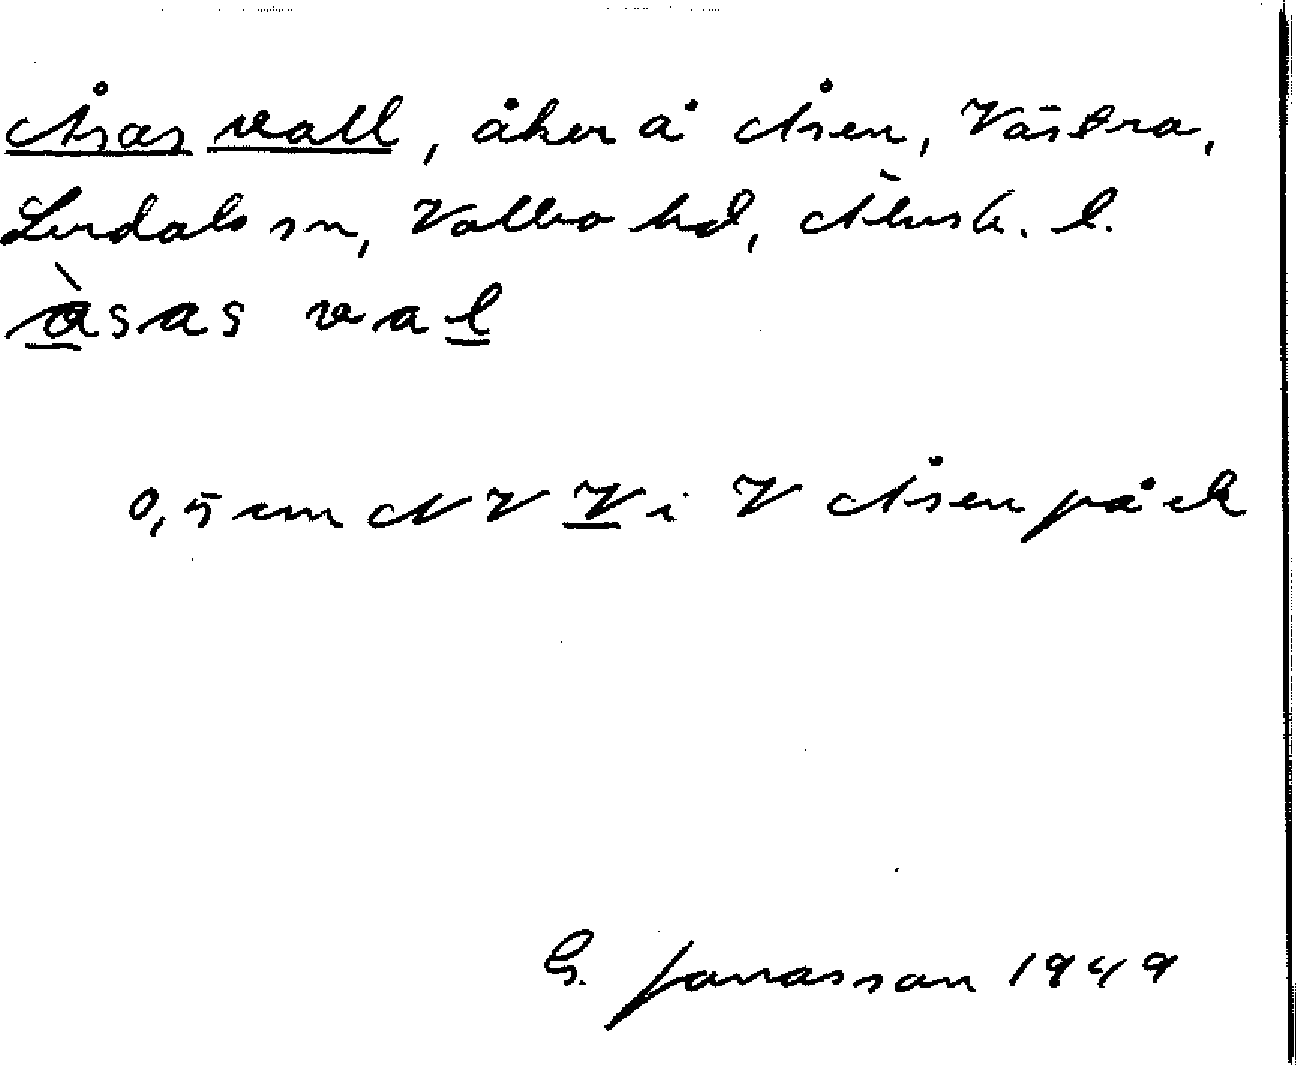 Åsas vall, åker å Åsen, Västra,
Lerdals sn, Valbo hd, Älvsb. l.
åsas val
0,5 cm NV V i V Åsen på ek
G. Jonasson 1949